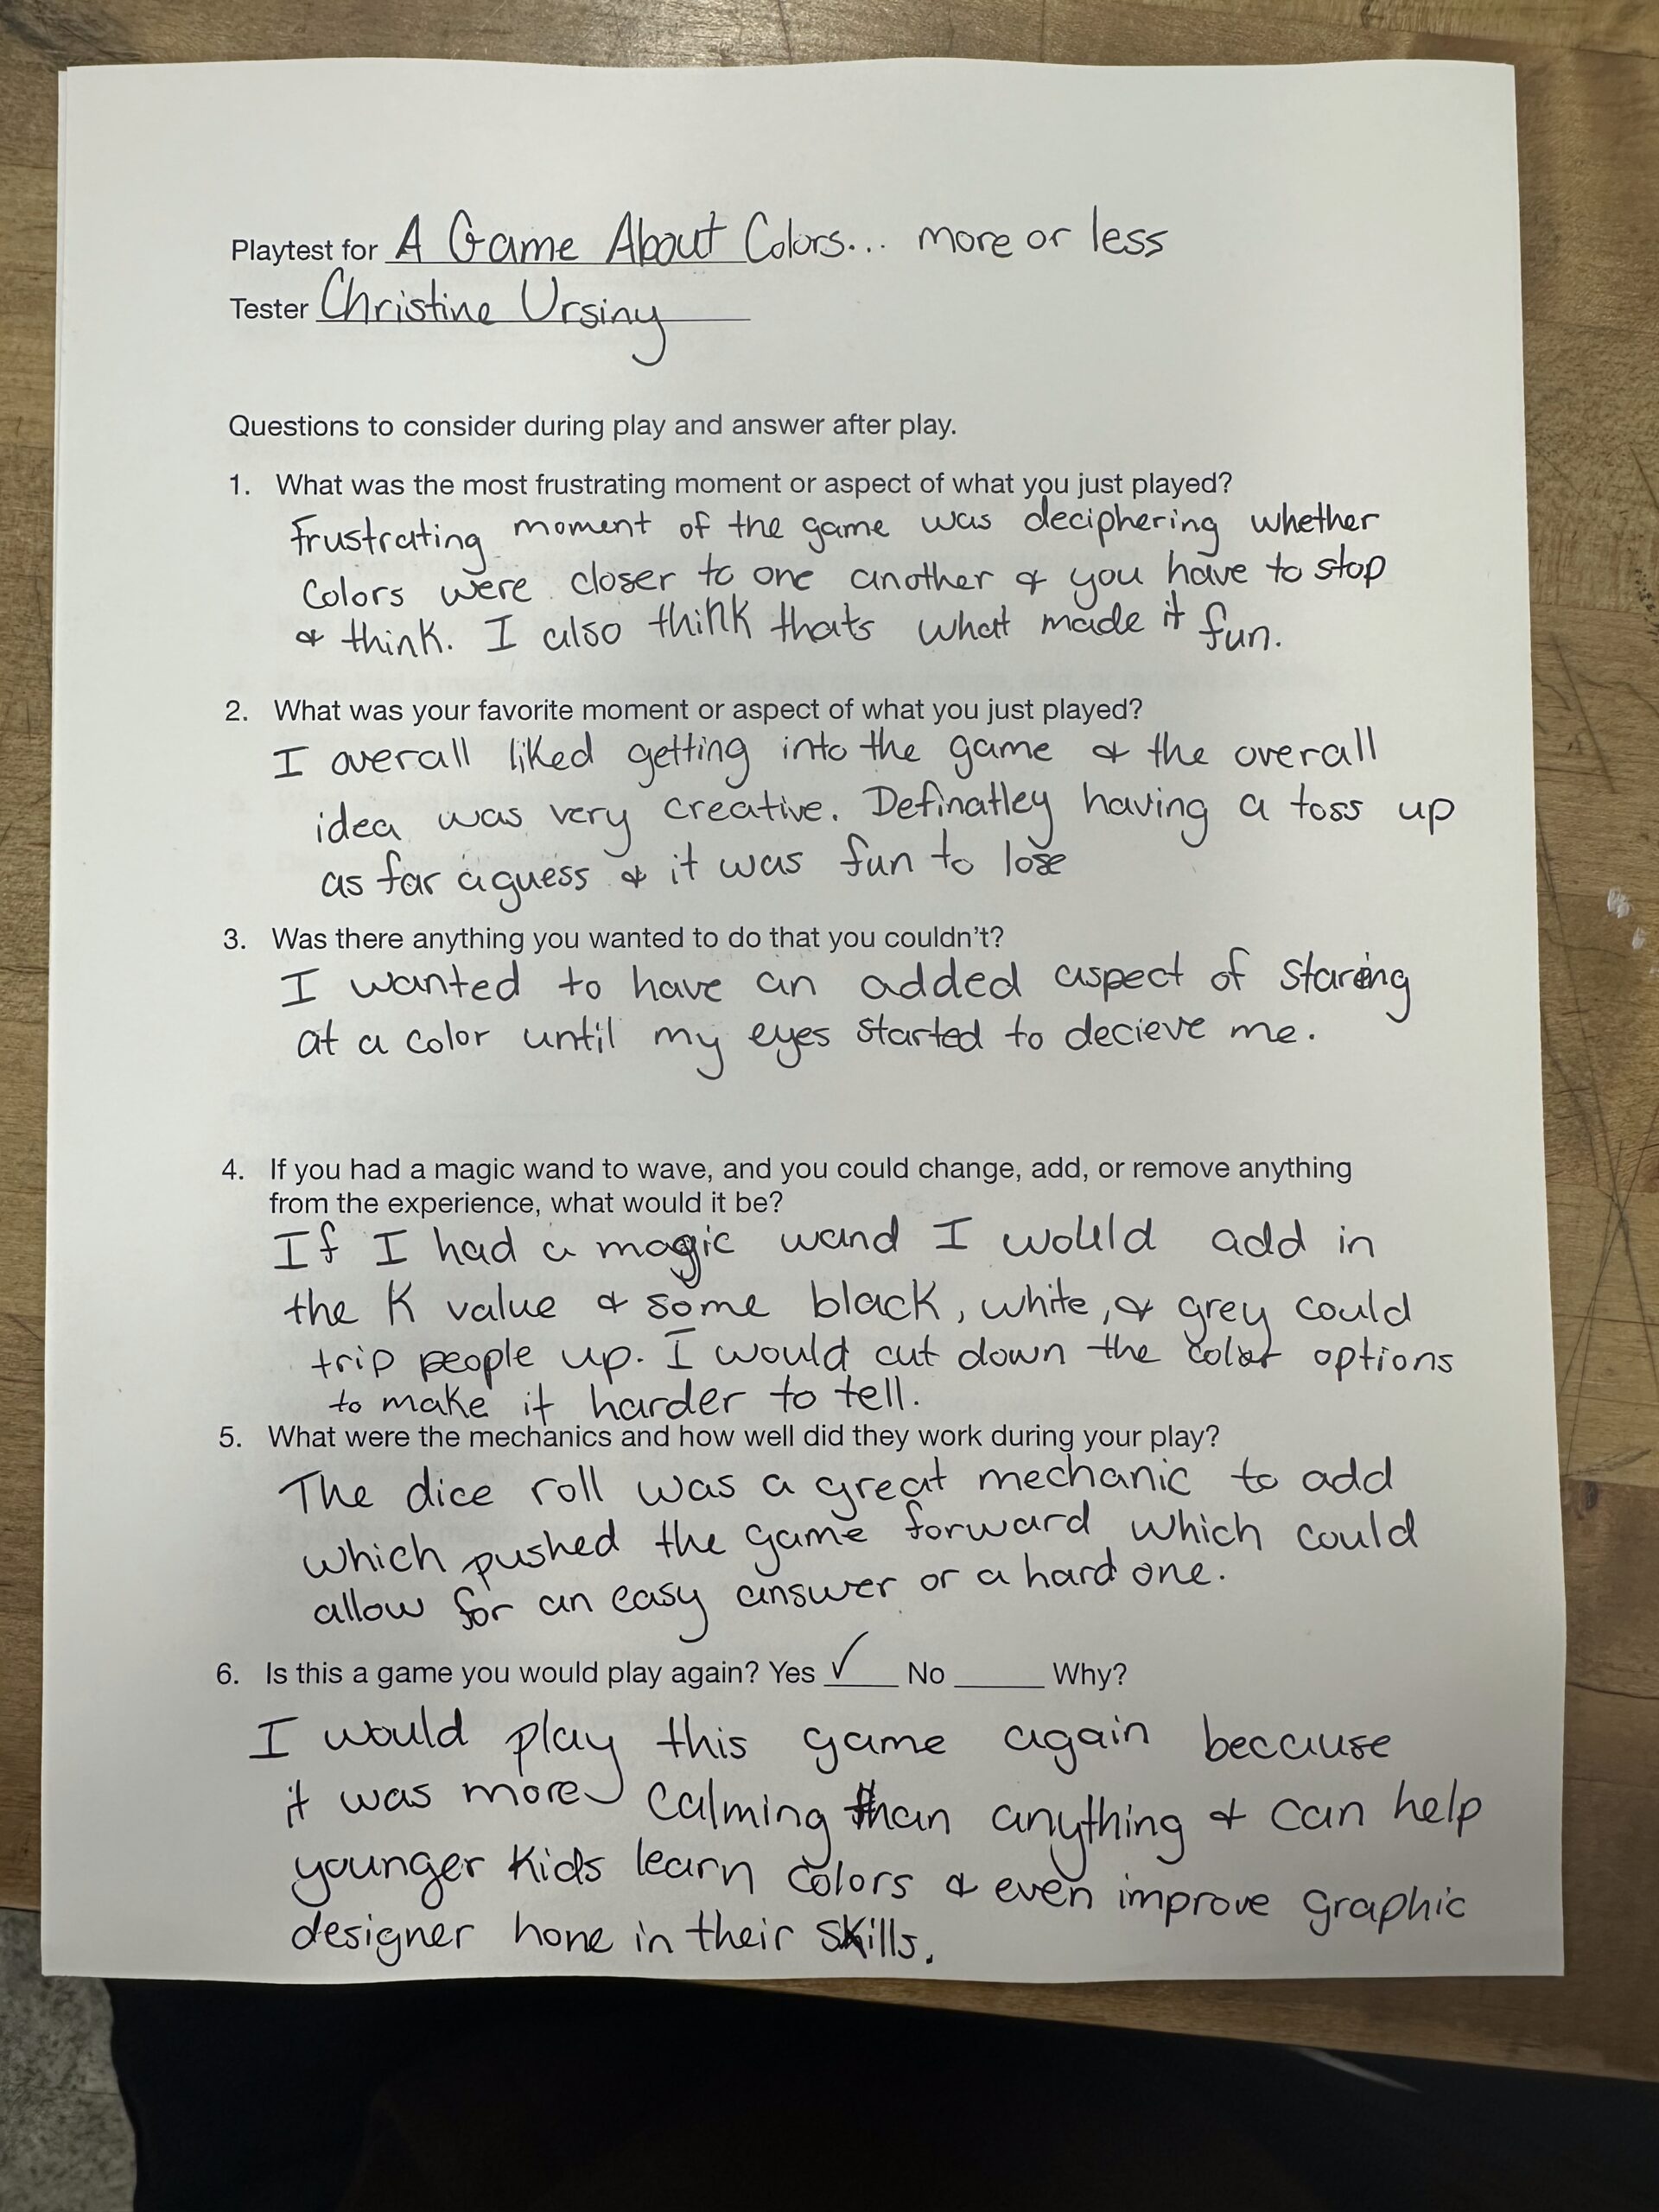 Playtest for A Game About Colors... more or less
Tester Christine Ursiny
Questions to consider during play and answer after play.
1. What was the most frustrating moment or aspect of what you just played?
Frustrating moment of the game was deciphering whether
colors were closer to one another & you have to stop
& think. I also think thats what made it fun.
2. What was your favorite moment or aspect of what you just played?
I overall liked getting into the game & the overall
idea was very creative. Definatley having a toss up
as far a guess & it was fun to lose
3. Was there anything you wanted to do that you couldn't?
I wanted to have an added aspect of staring
at a color until my eyes started to decieve me.
4. If you had a magic wand to wave, and you could change, add, or remove anything
from the experience, what would it be?
If I had a magic wand I would add in
the K value & some black, white, & grey could
trip people up. I would cut down the color options
to make it harder to tell.
5. What were the mechanics and how well did they work during your play?
The dice roll was a great mechanic to add
which pushed the game forward which could
allow for an easy answer or a hard one.
6. Is this a game you would play again? Yes ✓ No ____ Why?
I would play this game again because
it was more calming than anything & can help
younger kids learn colors & even improve graphic
designer hone in their skills.